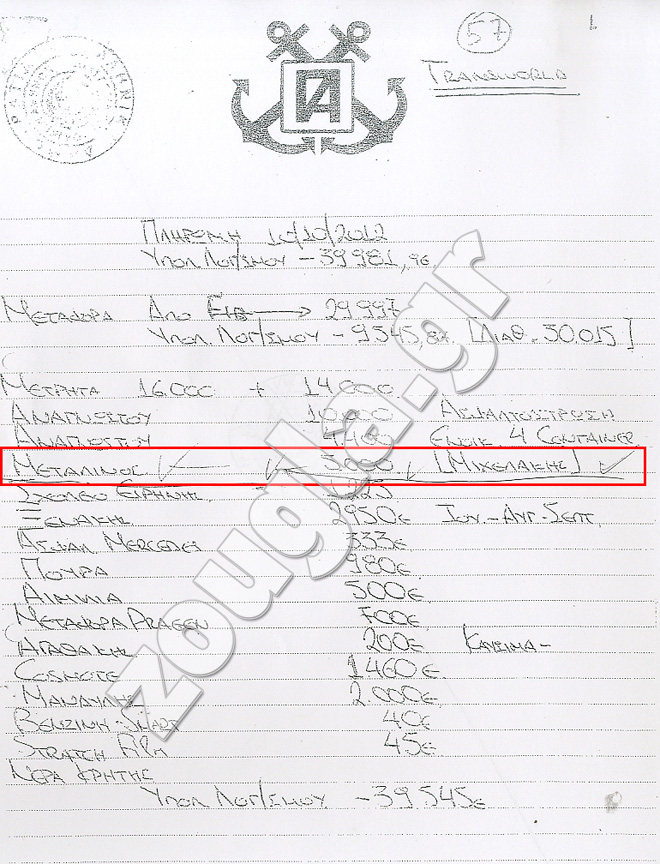 57
TRANSWORLD
ΠΛΗΡΩΜΗ 10/10/2012
ΥΠΟΛ ΛΟΓ/ΣΜΟΥ -39981,96
ΜΕΤΑΦΟΡΑ ΑΠΟ → 29.997
ΥΠΟΛ. ΛΟΓ/ΣΜΟΥ - 9545,82 [ΔΙΑΘ. 30.015]
ΜΕΤΡΗΤΑ 16.000 + 14.000
ΑΝΑΓΝΩΣΤΟΥ 10.000 ΑΣΦΑΛΤΟΣΤΡΩΣΗ
ΑΝΑΓΝΩΣΤΟΥ 4.400 ΕΝΟΙΚ. 4 CONTAINER
ΜΕΤΑΛΙΝΟΣ 5.000 [ΜΙΧΕΛΑΚΗΣ] ✓
ΣΧΟΛΕΙΟ ΕΙΡΗΝΗΣ
ΞΕΝΑΚΗΣ 2950€ ΙΟΥ.-ΑΥΓ-ΣΕΠΤ.
ΑΣΦΑΛ MERCEDES 333€
ΠΟΥΡΑ 980€
ΑΙΜΙΛΙΑ 500€
ΜΕΤΑΦΟΡΑ DRAGEN 700€
ΑΓΑΘΑΚΗΣ 200€ ΚΑΥΣΙΜΑ-
COSMOTE 1460€
ΜΑΝΩΛΗΣ 2.000€
ΒΕΝΖΙΝΗ-SMART 40€
STRATCH FILM 45€
ΝΕΡΑ ΚΡΗΤΗΣ
ΥΠΟΛ ΛΟΓ/ΣΜΟΥ -39545€
zougla.gr